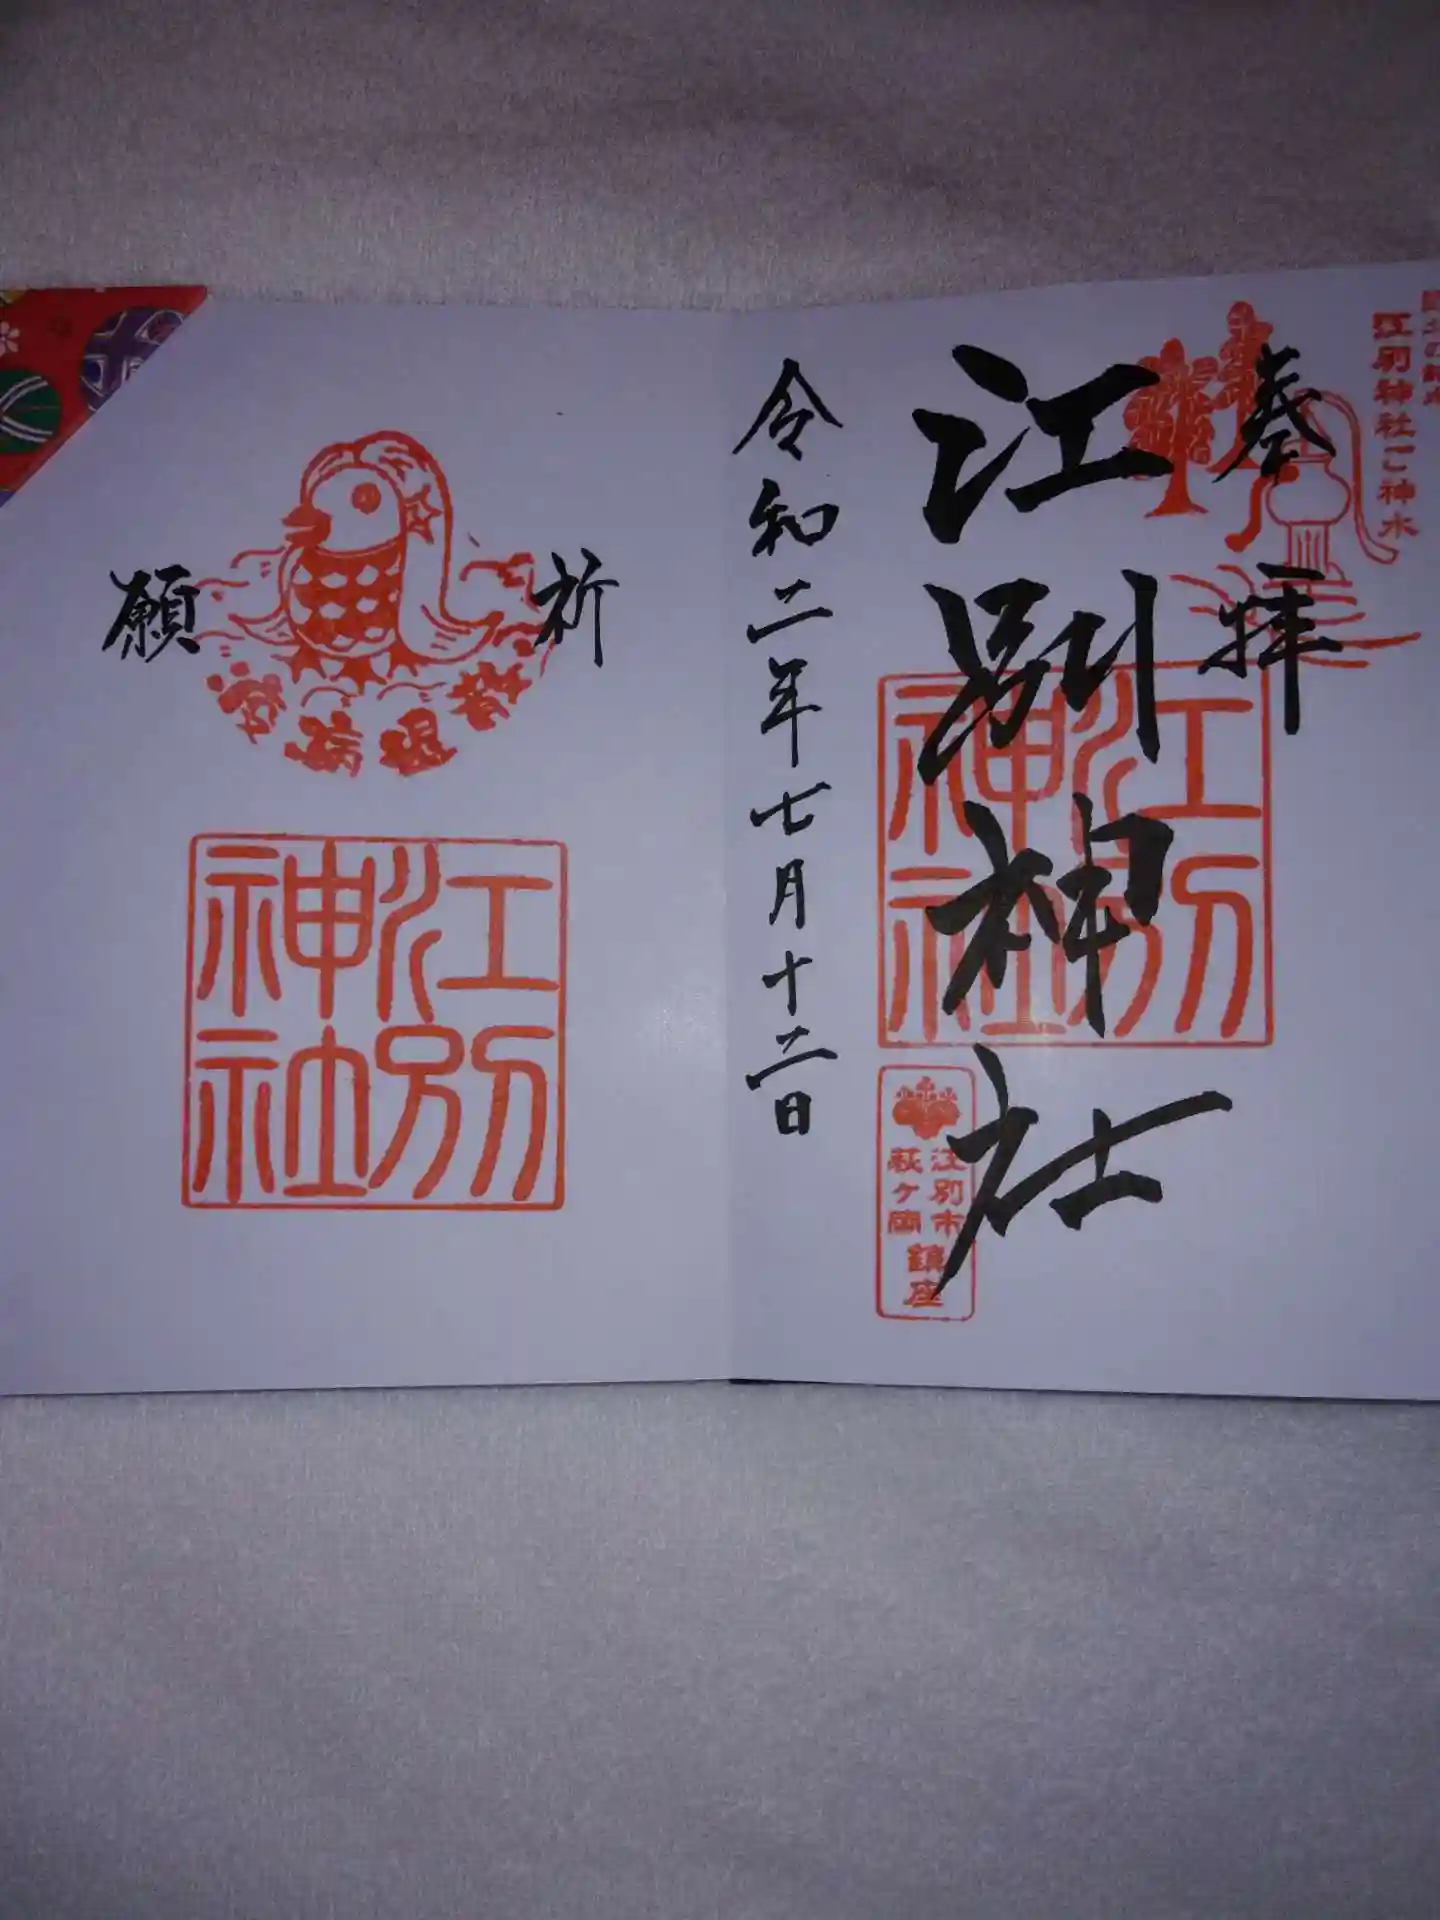 江別神社御神水
奉拝
江別神社
江別神社
江別市
萩ヶ岡
鎮座
令和二年七月十二日
祈願
疫病退散
江別神社